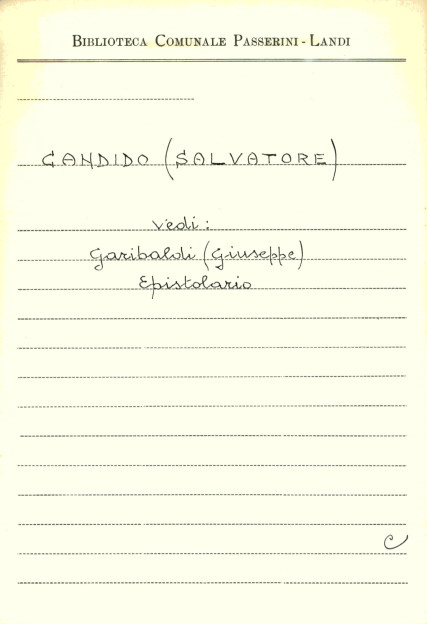 BIBLIOTECA COMUNALE PASSERINI - LANDI
CANDIDO (SALVATORE)
vedi:
Garibaldi (Giuseppe)
Epistolario
C